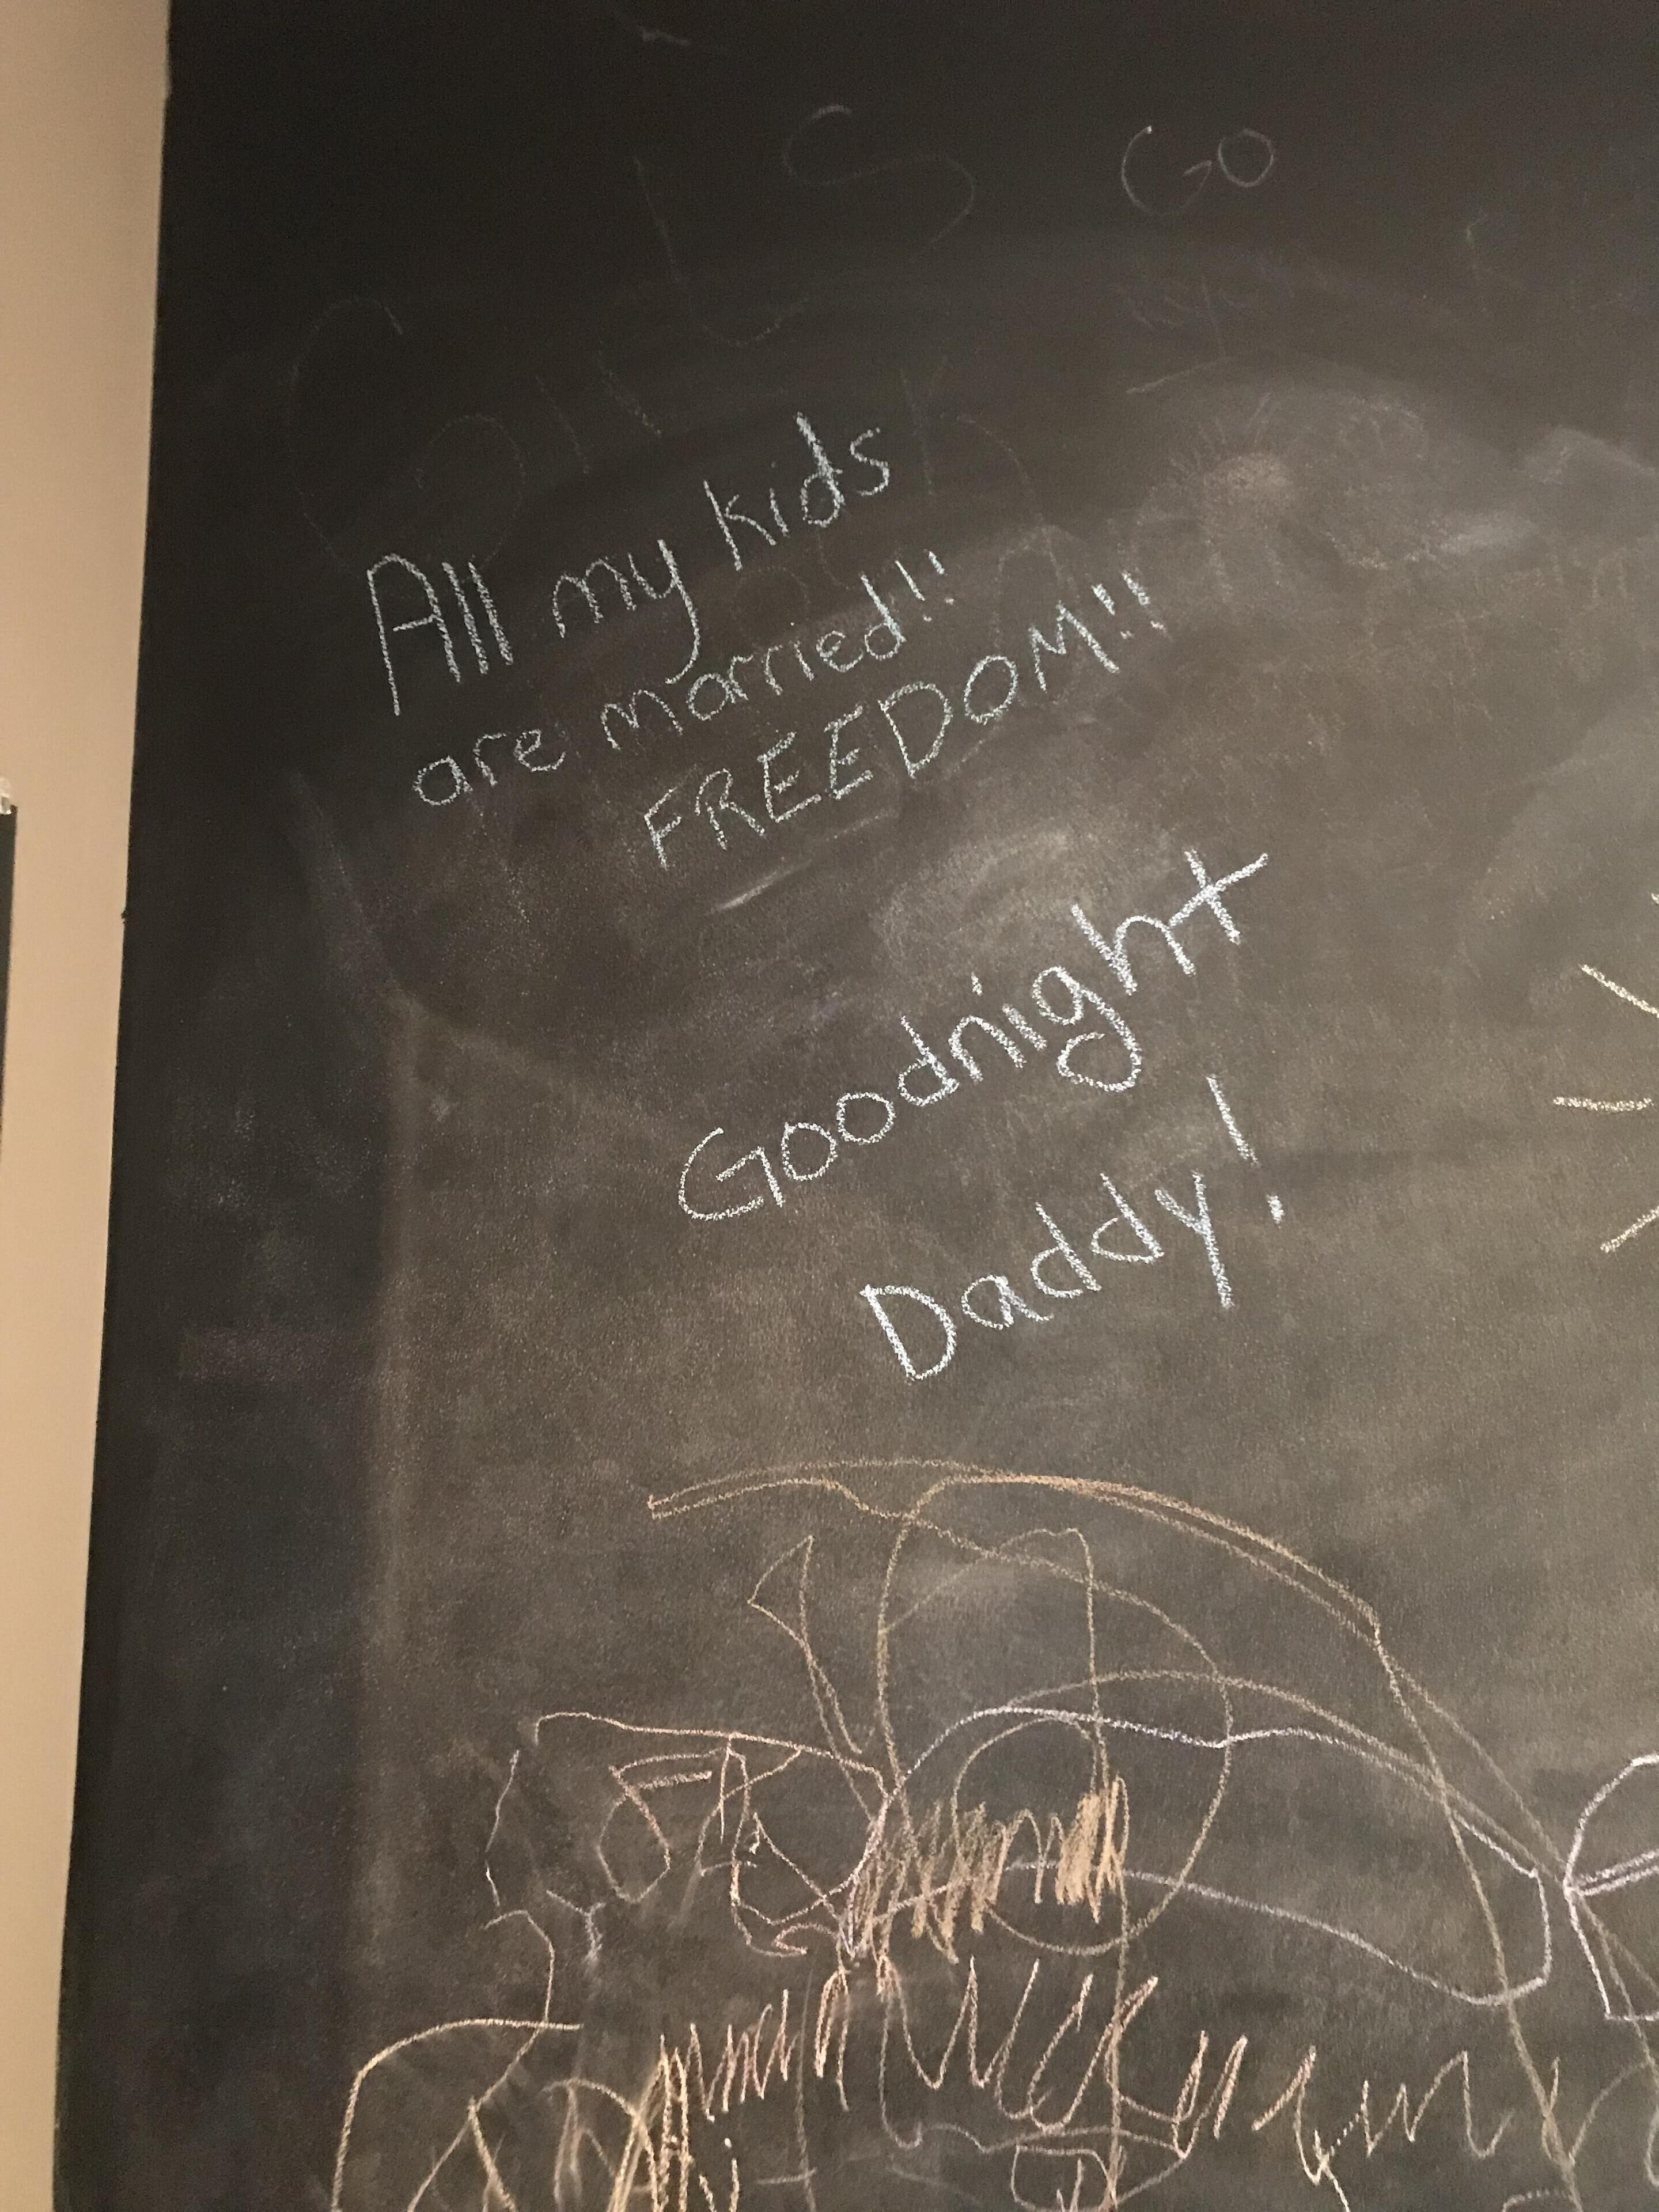 GO
All my kids
are married!!
FREEDOM!!
Goodnight
Daddy!